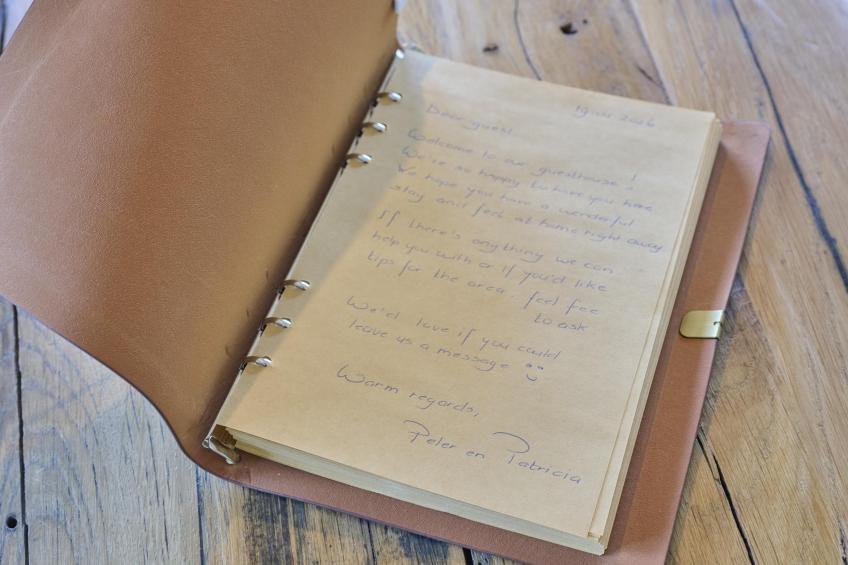 19 mei 2026
Dear guest
Welcome to our guesthouse!
We're so happy to have you here
We hope you have a wonderful
stay and feel at home right away
If there's anything we can
help you with or if you'd like
tips for the area, feel free
to ask
We'd love if you could
leave us a message
Warm regards,
Peter en Patricia